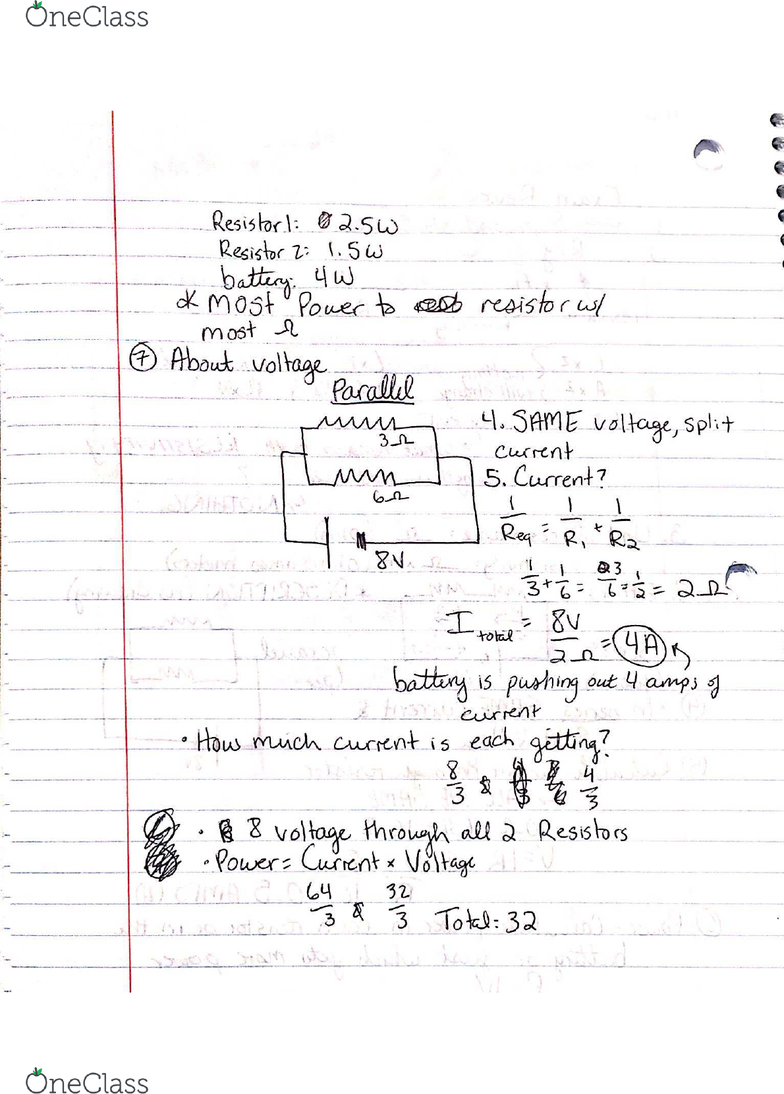 OneClass
Resistor 1: 2.5W
Resistor 2: 1.5W
battery: 4W
* MOST Power to resistor w/
most Ω
⑦ About voltage
Parallel
3Ω
6Ω
8V
4. SAME voltage, split
current
5. Current?
1/Req = 1/R₁ + 1/R₂
1/3 + 1/6 = 3/6 = 1/2 = 2Ω
I total = 8V/2Ω = 4A
battery is pushing out 4 amps of
current
• How much current is each getting?
8/3 & 4/3
• 8 voltage through all 2 Resistors
• Power = Current × Voltage
64/3 & 32/3 Total: 32
OneClass